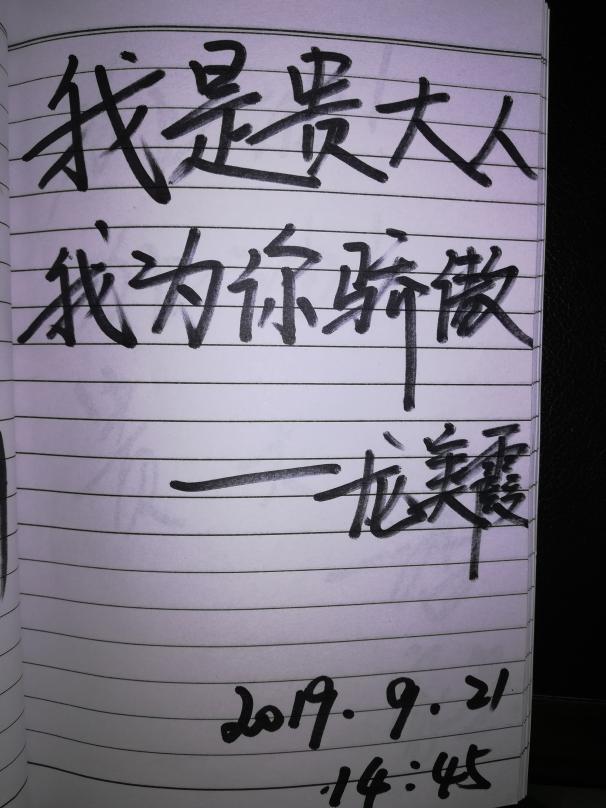 我是贵大人
我为你骄傲
——龙美霞
2019.9.21
14:45